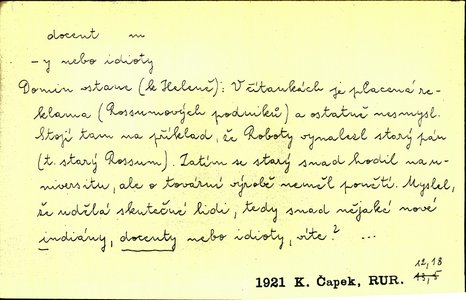 docent m
- y nebo idioty
Domin vstane (k Heleně): V čítankách je placená re-
klama (Rossumových podniků) a ostatně nesmysl.
Stojí tam na příklad, že Roboty vynalezl starý pán
(t. starý Rossum). Zatím se starý snad hodil na u-
niversitu, ale o tovární výrobě neměl ponětí. Myslel,
že udělá skutečné lidi, tedy snad nějaké nové
indiány, docenty nebo idioty, víte? ...
12,18
1921 K. Čapek, RUR.